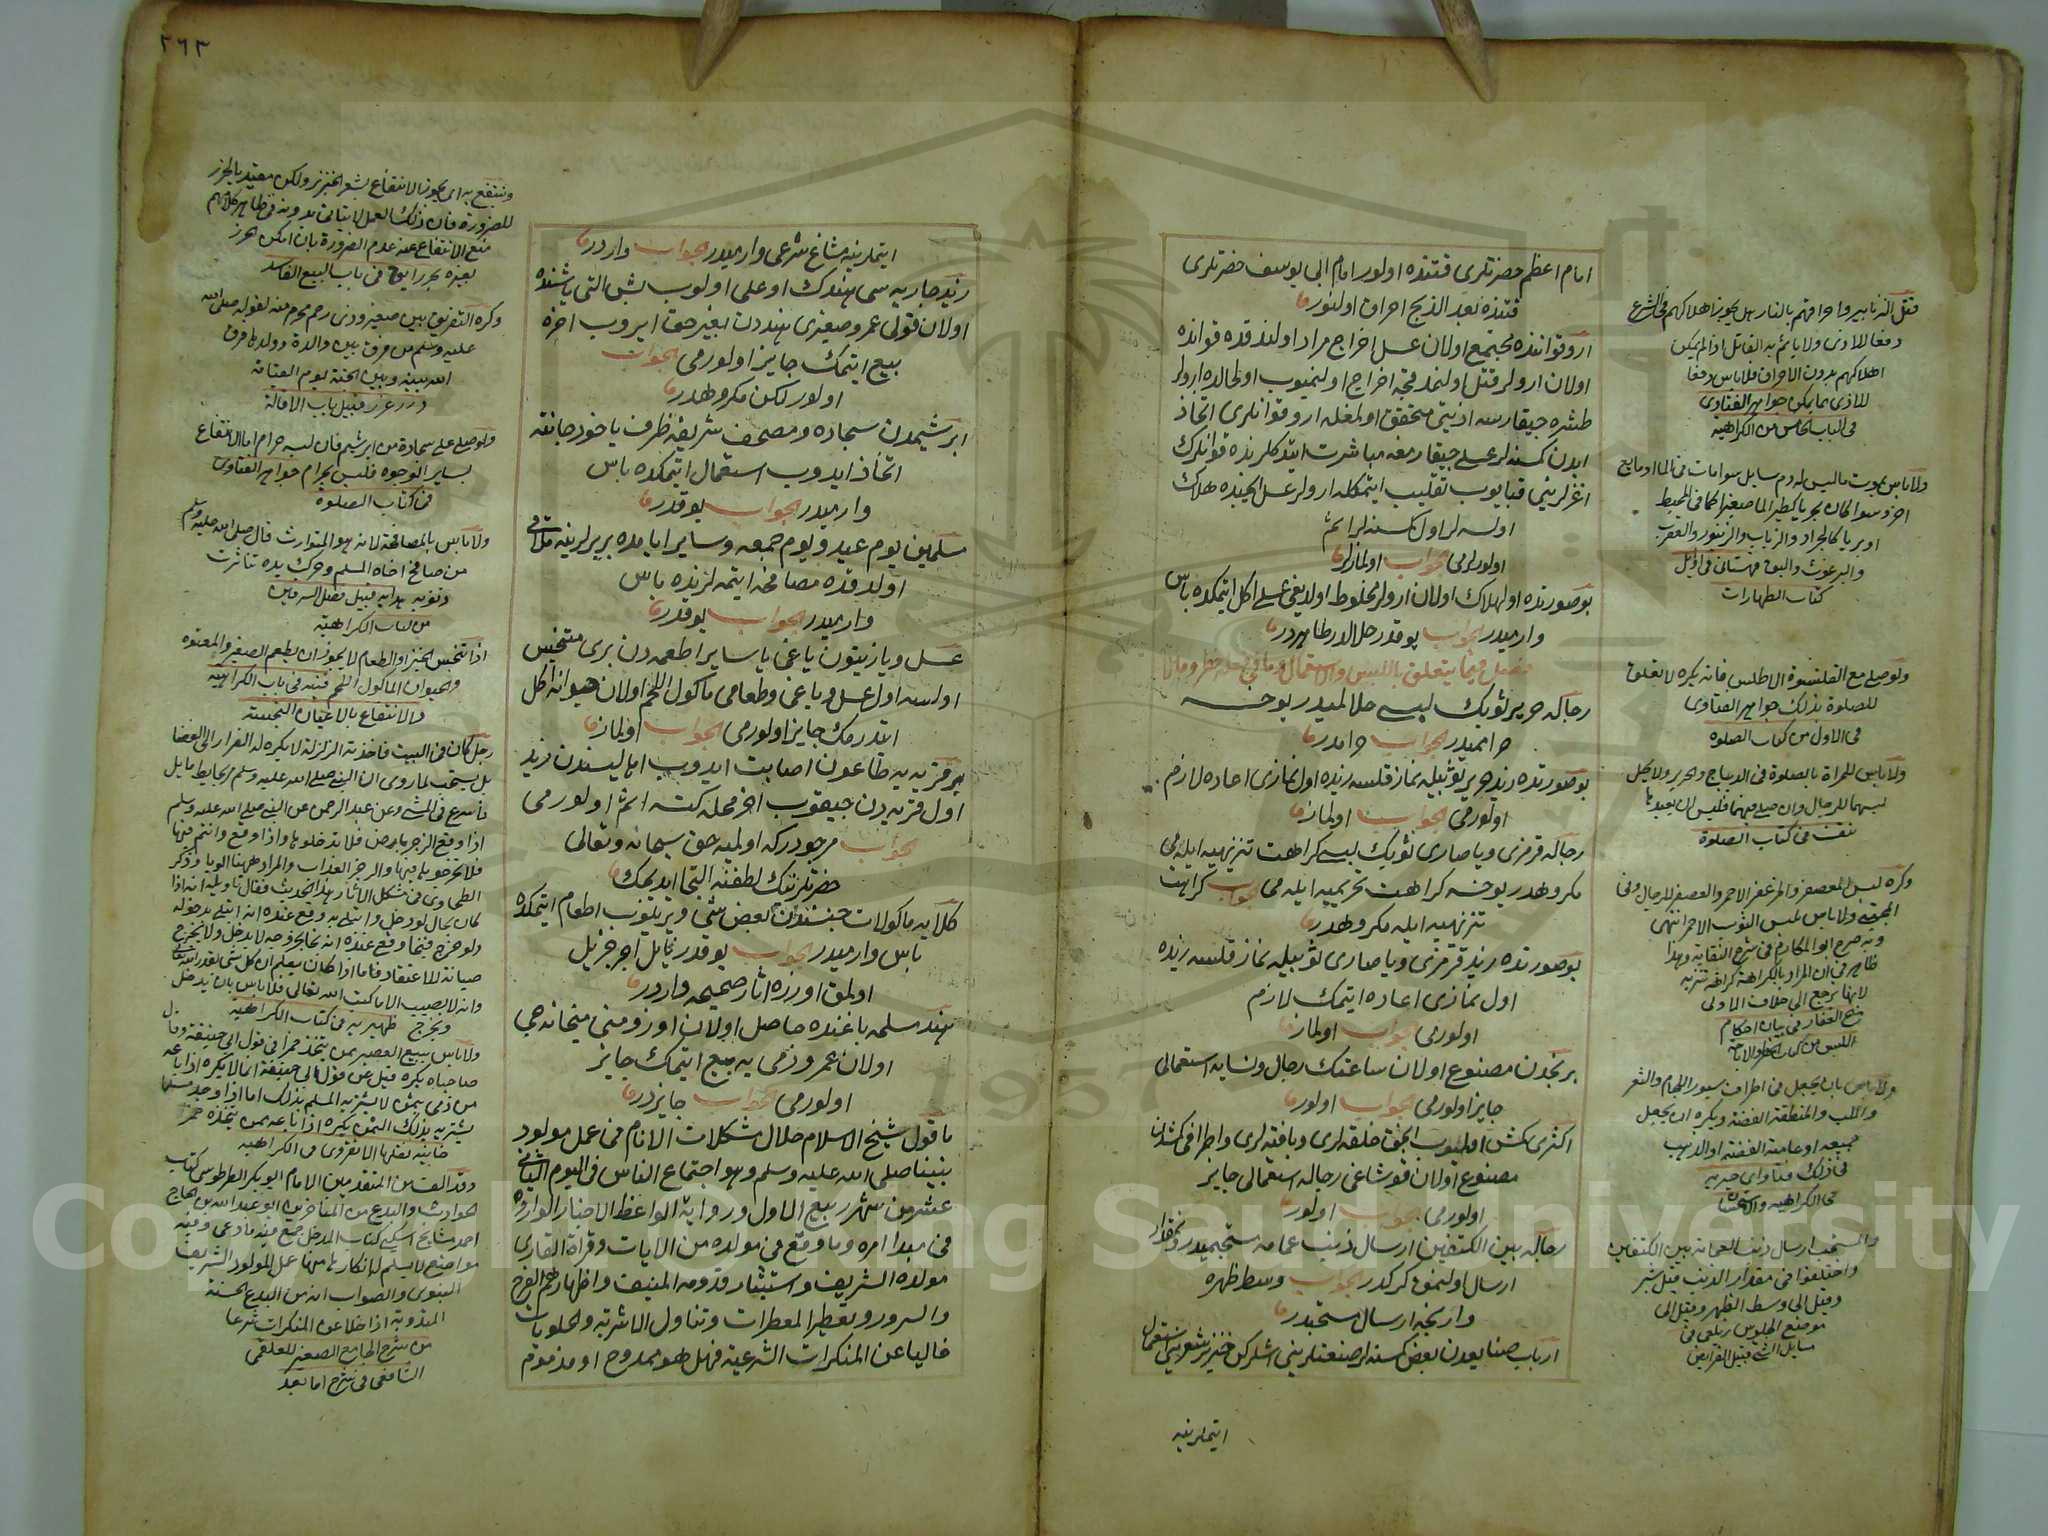 امام اعظم حضرتلری قتنده اولور امام ابی یوسف حضرتلری
قتنده بعد الذبح احراق اولنور
ارو قواننده مجتمع اولان عسل اخراج مراد اولندقده قوانده
اولان ارولر قتل اولنمدقجه اخراج اولنمیوب اولحالده ارولر
طشره جیقارسه اذیتی متحقق اولمغله ارو قوانلری اتخاذ
ایدن کمسنه لر عسلی جیقارمغه مباشرت ایتدکلرنده قوانلرک
اغزلرینی قپایوب تقلیب ایتمکله ارولر عسل ایچنده هلاک
اولسه لر اول کمسنه لر اثم
اولورلرمی الجواب اولمازلر
بو صورتده اولهلاک اولان ارولر مخلوط اولدیغی عسلی اکل ایتمکده باس
وارمیدر الجواب یوقدر حلالدر طاهردر
فصل فیما یتعلق باللبس والاستعمال
رجاله حریر ثوبک لبسی حلالمیدر یوخسه
حرامیدر الجواب حرامدر
بو صورتده زید حریر ثوبیله نماز قلسه زیده اول نمازی اعاده لازم
اولورمی الجواب اولماز
رجاله قرمزی ویا صاری ثوبک لبسی کراهت تنزیهیه ایله می
مکروهدر یوخسه کراهت تحریمیه ایله می الجواب کراهت
تنزیهیه ایله مکروهدر
بو صورتده زید قرمزی ویا صاری ثوبیله نماز قلسه زیده
اول نمازی اعاده ایتمک لازم
اولورمی الجواب اولماز
بر نجدن مصنوع اولان ساعتک رجال ونسایه استعمالی
جایز اولورمی الجواب اولور
مصنوع اولان قوشاغی رجاله استعمالی جایز
اولورمی الجواب اولور
رجاله بین الکتفین ارسال ذنب عمامه مستحبمیدر ونه مقدار
ارسال اولنمق کرکدر الجواب وسط ظهره
وارنجه ارسال مستحبدر
ارباب صنایعدن بعض کمسنه لر صنعتلرینی اشلرکن خنزیر شعرینی استعمال
ایتملرینه
قتل الزنابیر واحراقهم بالنار هل یجوز اهلاکهم فی الشرع
دفعا للاذی ولا یأثم به القاتل اذا لم یمکن
اهلاکهم بدون الاحراق فلا باس دفعا
للاذی بما یمکن جواهر الفتاوی
فی الباب الخامس من الکراهیة
ولا باس بموت ما لیس له دم سایل سوا مات فی الماء او مایع
اخر وسوا کان بحریا کطیر الماء صغیرا کما فی المحیط
او بریا کالجراد والذباب والزنبور والعقرب
والبرغوث والبق قهستانی فی اوایل
کتاب الطهارات
ولو صلی مع القلنسوة الاطلس فانه یکره لا تعلق
للصلوة بذلک جواهر الفتاوی
فی الاول من کتاب الصلوة
ولا باس للمراة بالصلوة فی الدیباج والحریر ولا یحل
لبسهما للرجال وان صلی فیهما فلیس ان یعیدها
نتف فی کتاب الصلوة
وکره لبس المعصفر والمزعفر الاحمر والاصفر للرجال وفی
المجتبی ولا باس بلبس الثوب الاحمر انتهی
وبه صرح ابو المکارم فی شرح النقایة وهذا
ظاهر فی ان المراد بالکراهة کراهة تنزیه
لانها ترجع الی خلاف الاولی
منح الغفار فی بیان احکام
اللبس من کتاب الحظر والاباحة
ولا باس بان یجعل فی اطراف سیور اللجام والثغر
واللبب والمنطقة الفضة ویکره ان یجعل
جمیعه او عامته الفضة او الذهب
فی ذلک فتاوای خیریه
فی الکراهیة والاستحسان
والمستحب ارسال ذنب العمامة بین الکتفین
واختلفوا فی مقدار الذنب قیل شبر
وقیل الی وسط الظهر وقیل الی
موضع الجلوس زیلعی فی
مسایل الشتی قبیل الفرایض
٢٦٣
ایتملرینه مساغ شرعی وارمیدر الجواب واردر
زید جاریه سی هندک اوغلی اولوب بش التی یاشنده
اولان قولی عمرو صغیری هنددن بغیر حق ایروب اخره
بیع ایتمک جایز اولورمی الجواب
اولور لکن مکروهدر
ابریشمدن سجاده و مصحف شریفه ظرف یاخود جانته
اتخاذ ایدوب استعمال ایتمکده باس
وارمیدر الجواب یوقدر
مسلمین یوم عید ویوم جمعه وسایر ایامده بربرلرینه ملاقی
اولدقده مصافحه ایتمه لرنده باس
وارمیدر الجواب یوقدر
عسل ویا زیتون یاغی یا سایر اطعمه دن بری متنجس
اولسه اول عسل ویاغی وطعامی ماکول اللحم اولان حیوانه اکل
ایتدرمک جایز اولورمی الجواب اولماز
بر قریه یه طاعون اصابت ایدوب اهالیسندن زید
اول قریه دن جیقوب اخر محله کتسه اثم اولورمی
الجواب مرجودرکه اولمیه حق سبحانه وتعالی
حضرتلرینک لطفنه التجا ایدجک
کلابه ماکولات جنسندن بعض شی ویریلوب اطعام ایتمکده
باس وارمیدر الجواب یوقدر نایل اجر جزیل
اولمق اوزره اثار صحیحه واردر
هند مسلمه باغنده حاصل اولان اوزومنی میخانه جی
اولان عمرو ذمی یه بیع ایتمک جایز
اولورمی الجواب جایزدر
ما قول شیخ الاسلام حلال مشکلات الانام فی عمل مولود
نبینا صلی الله علیه وسلم وهو اجتماع الناس فی الیوم الثانی
عشر من شهر ربیع الاول وروایة الواعظ الاخبار الواردة
فی مبدا امره وما وقع فی مولده من الایات وقراة القاری
مولده الشریف واستبشار قدومه المنیف واظهارهم الفرح
والسرور وتعطیر المعطرات وتناول الاشربة والحلویات
خالیا عن المنکرات الشرعیة فهل هو ممدوح او مذموم
وینتفع به ای یجوز الانتفاع بشعر الخنزیر ولکن مقید بالخرز
للضرورة فان ذلک العمل لا یتاتی بدونه فی ظاهر کلامهم
منع الانتفاع عند عدم الضرورة بان امکن الخرز
بغیره بحر رایق فی باب البیع الفاسد
وکره التفریق بین صغیر وذی رحم محرم منه لقوله صلی الله
علیه وسلم من فرق بین والدة وولدها فرق
الله بینه وبین احبته یوم القیامة
درر غرر قبیل باب الاقالة
ولو صلی علی سجادة من ابریشم فان لبسه حرام اما الانتفاع
بسایر الوجوه فلیس بحرام جواهر الفتاوی
فی کتاب الصلوة
ولا باس بالمصافحة لانه هو المتوارث قال صلی الله علیه وسلم
من صافح اخاه المسلم وحرک یده تناثرت
ذنوبه هدایه قبیل فصل السرقین
من کتاب الکراهیة
اذا تنجس الخبز او الطعام لا یجوز ان یطعم الصغیر والمعتوه
والحیوان الماکول اللحم قنیه فی باب الکراهیة
والانتفاع بالاعیان النجسة
رجل کان فی البیت فاخذته الزلزلة لا یکره له الفرار الی الفضا
بل یستحب لما روی ان النبی صلی الله علیه وسلم مر بحایط مایل
فاسرع فی المشی وعن عبد الرحمن عن النبی صلی الله علیه وسلم
اذا وقع الرجز بارض فلا تدخلوها واذا وقع وانتم فیها
فلا تخرجوا منها والرجز العذاب والمراد ههنا الوبا وذکر
الطحاوی فی مشکل الاثار هذا الحدیث فقال تاویله انه اذا
کان بحال لو دخل وابتلی به وقع عنده انه ابتلی بدخوله
ولو خرج فنجا وقع عنده انه نجا بخروجه لا یدخل ولا یخرج
صیانة للاعتقاد فاما اذا کان یعلم ان کل شی بقدر الله تعالی
وانه لا یصیبه الا ما کتب الله تعالی فلا باس بان یدخل
ویخرج ظهیریه فی کتاب الکراهیة
ولا باس ببیع العصیر ممن یتخذ خمرا فی قول ابی حنیفة وقال
صاحباه یکره قیل علی قول ابی حنیفة انما لا یکره اذا باعه
من ذمی بثمن لا یشتریه المسلم بذلک اما اذا وجد مسلما
یشتریه بذلک الثمن یکره اذا باعه ممن یتخذه خمرا
خانیه نقلها الانقروی فی الکراهیة
وقد الف من المتقدمین الامام ابو بکر الطرطوسی کتاب
الحوادث والبدع ومن المتاخرین ابو عبد الله بن الحاج
احد مشایخ
مواضع لا یسلم له انکارها منها عمل المولود الشریف
النبوی والصواب انه من البدع الحسنة
المندوبة اذا خلا عن المنکرات شرعا
من شرح الجامع الصغیر للعلقمی
الشافعی فی شرح اما بعد
Copyright © King Saud University
1957